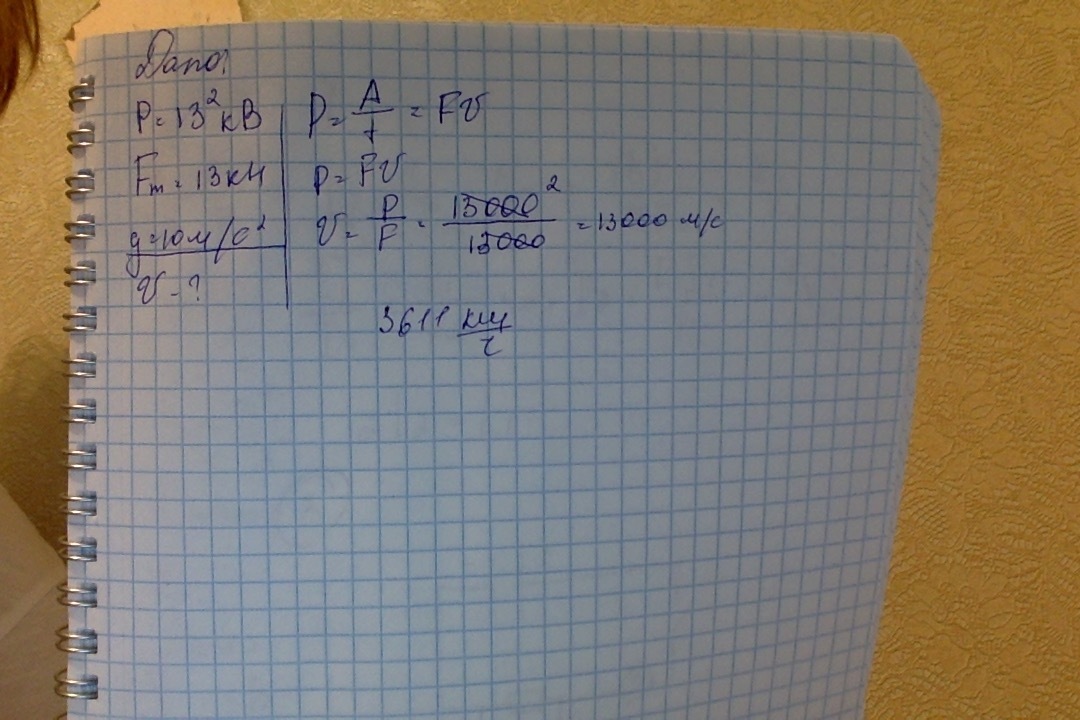 Дано:
P = 13² кВ
Fт = 13 кН
g = 10 м/с²
v - ?
P = A/t = Fv
P = Fv
v = P/F = 13000²/13000 = 13000 м/с
3611 км/ч